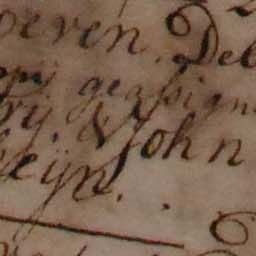 oeven. Del
geassign
rij, & John
eijn.